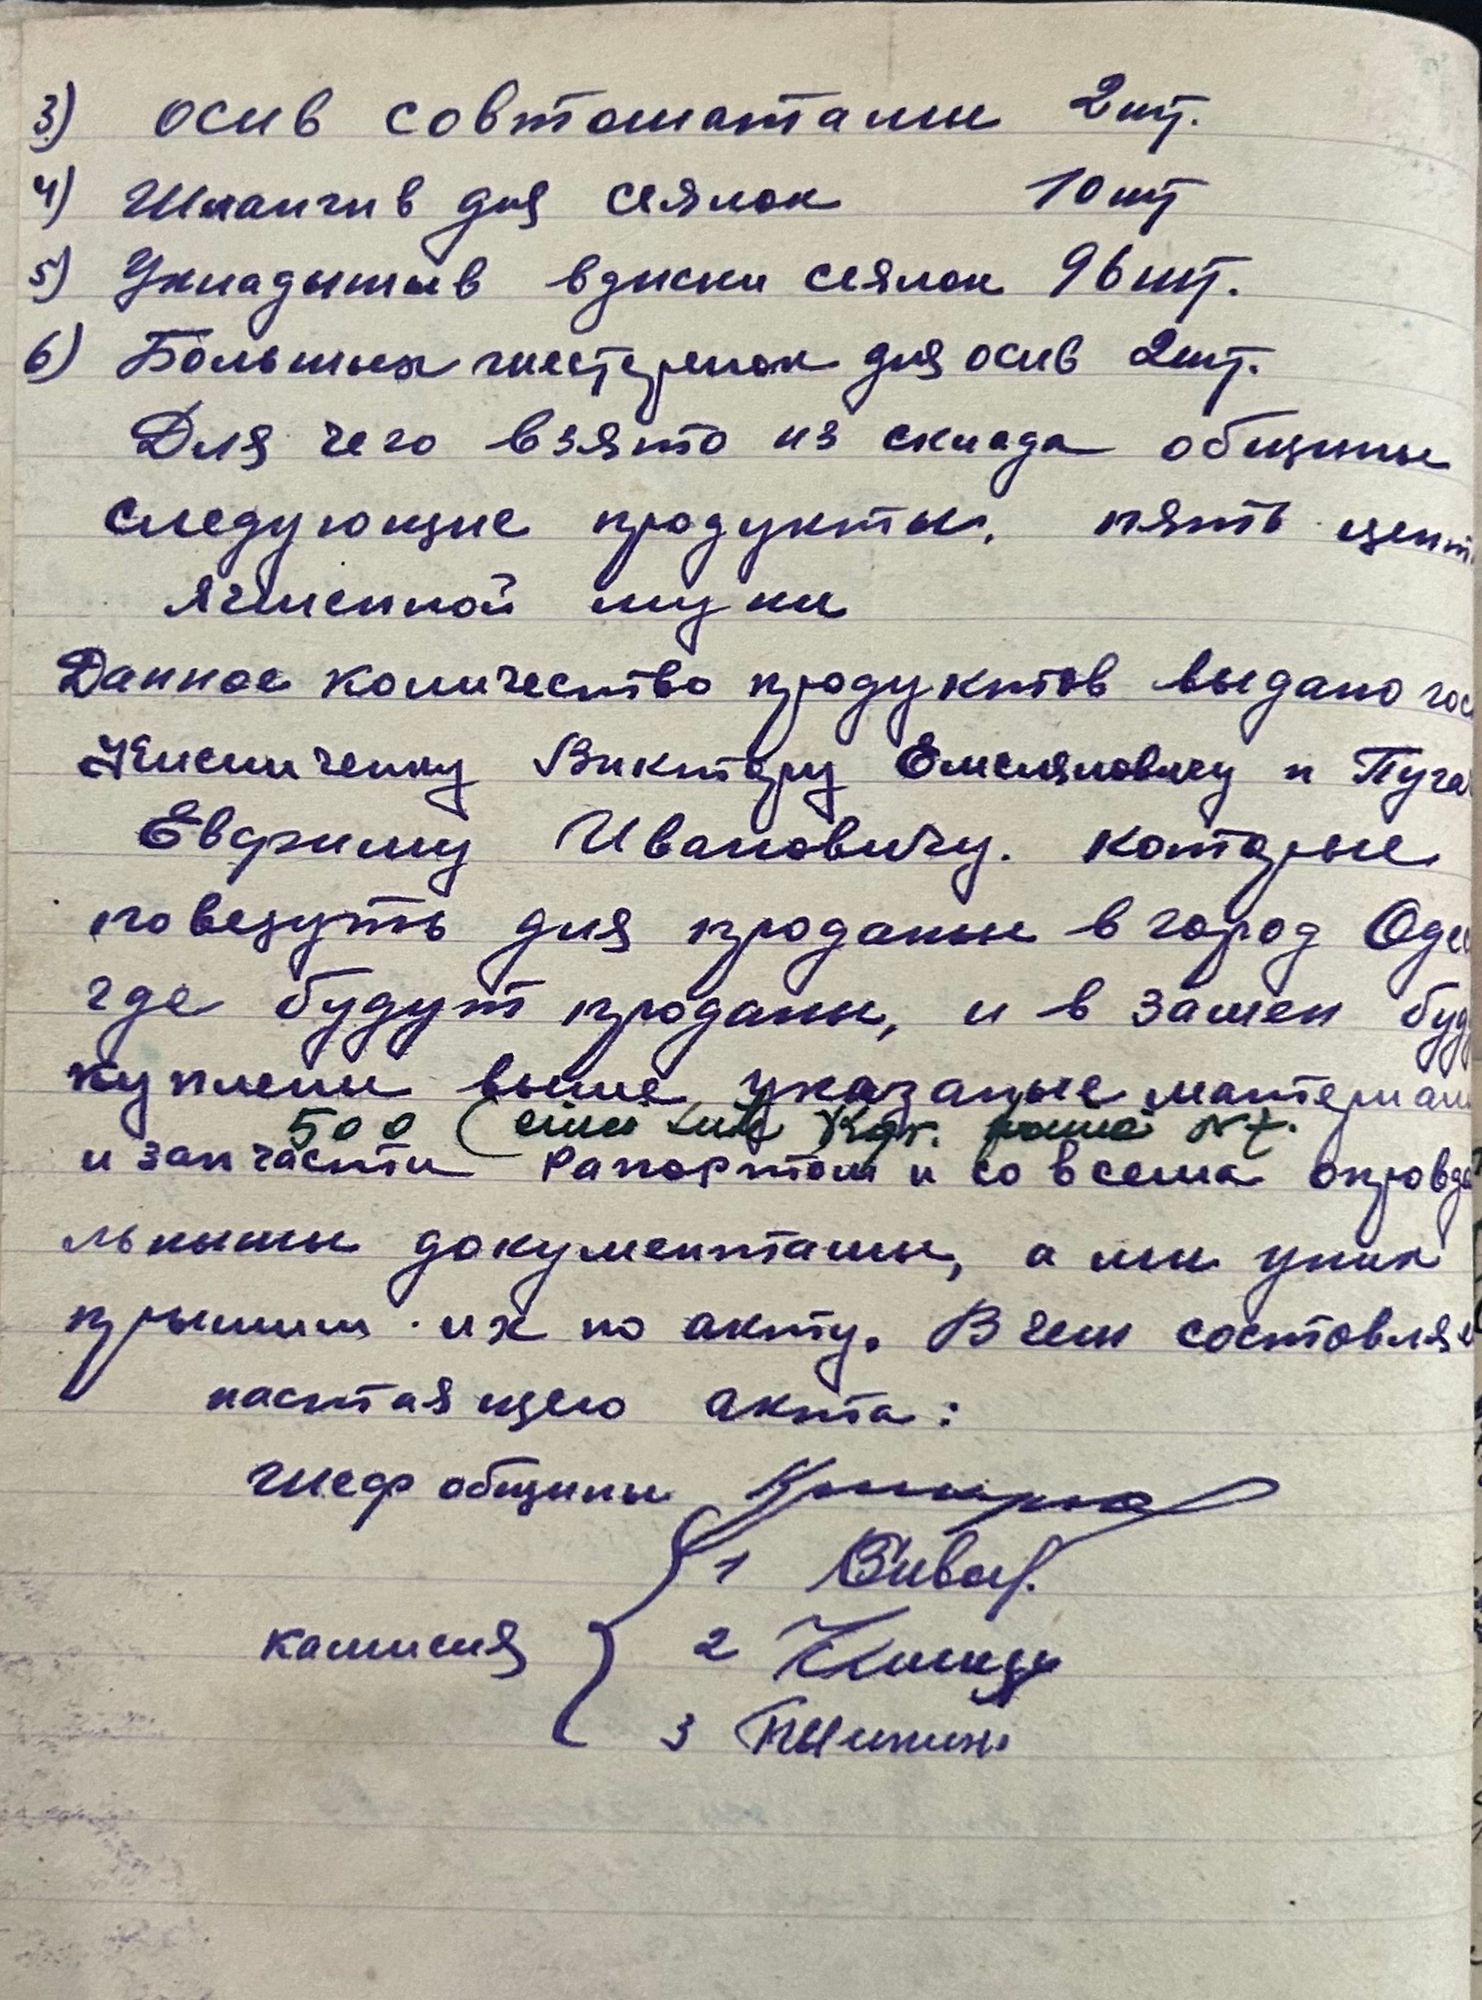 3) осив совтоматами 2 шт.
4) Шлангив для сеялок 10 шт
5) Укладышив в диски сеялок 96 шт.
6) Больших шестерьнок для осив 2 шт.
Для чего взято из склада общины
следующие продукты. пять цент
ячменной муки
Данное количество продуктов выдано гос
Виктору Емеляновичу и Пуга
Евфиму Ивановичу. которые
повезуть для продажы в город Оде
где будут проданы, и в замен буд
куплены выше указаные материал
500
и запчасти Рапортом и со всема опровда
льныты документамы, а мы
их по акту. В чем составля
настаящего акта:
шеф общины
камисия
1
2
3